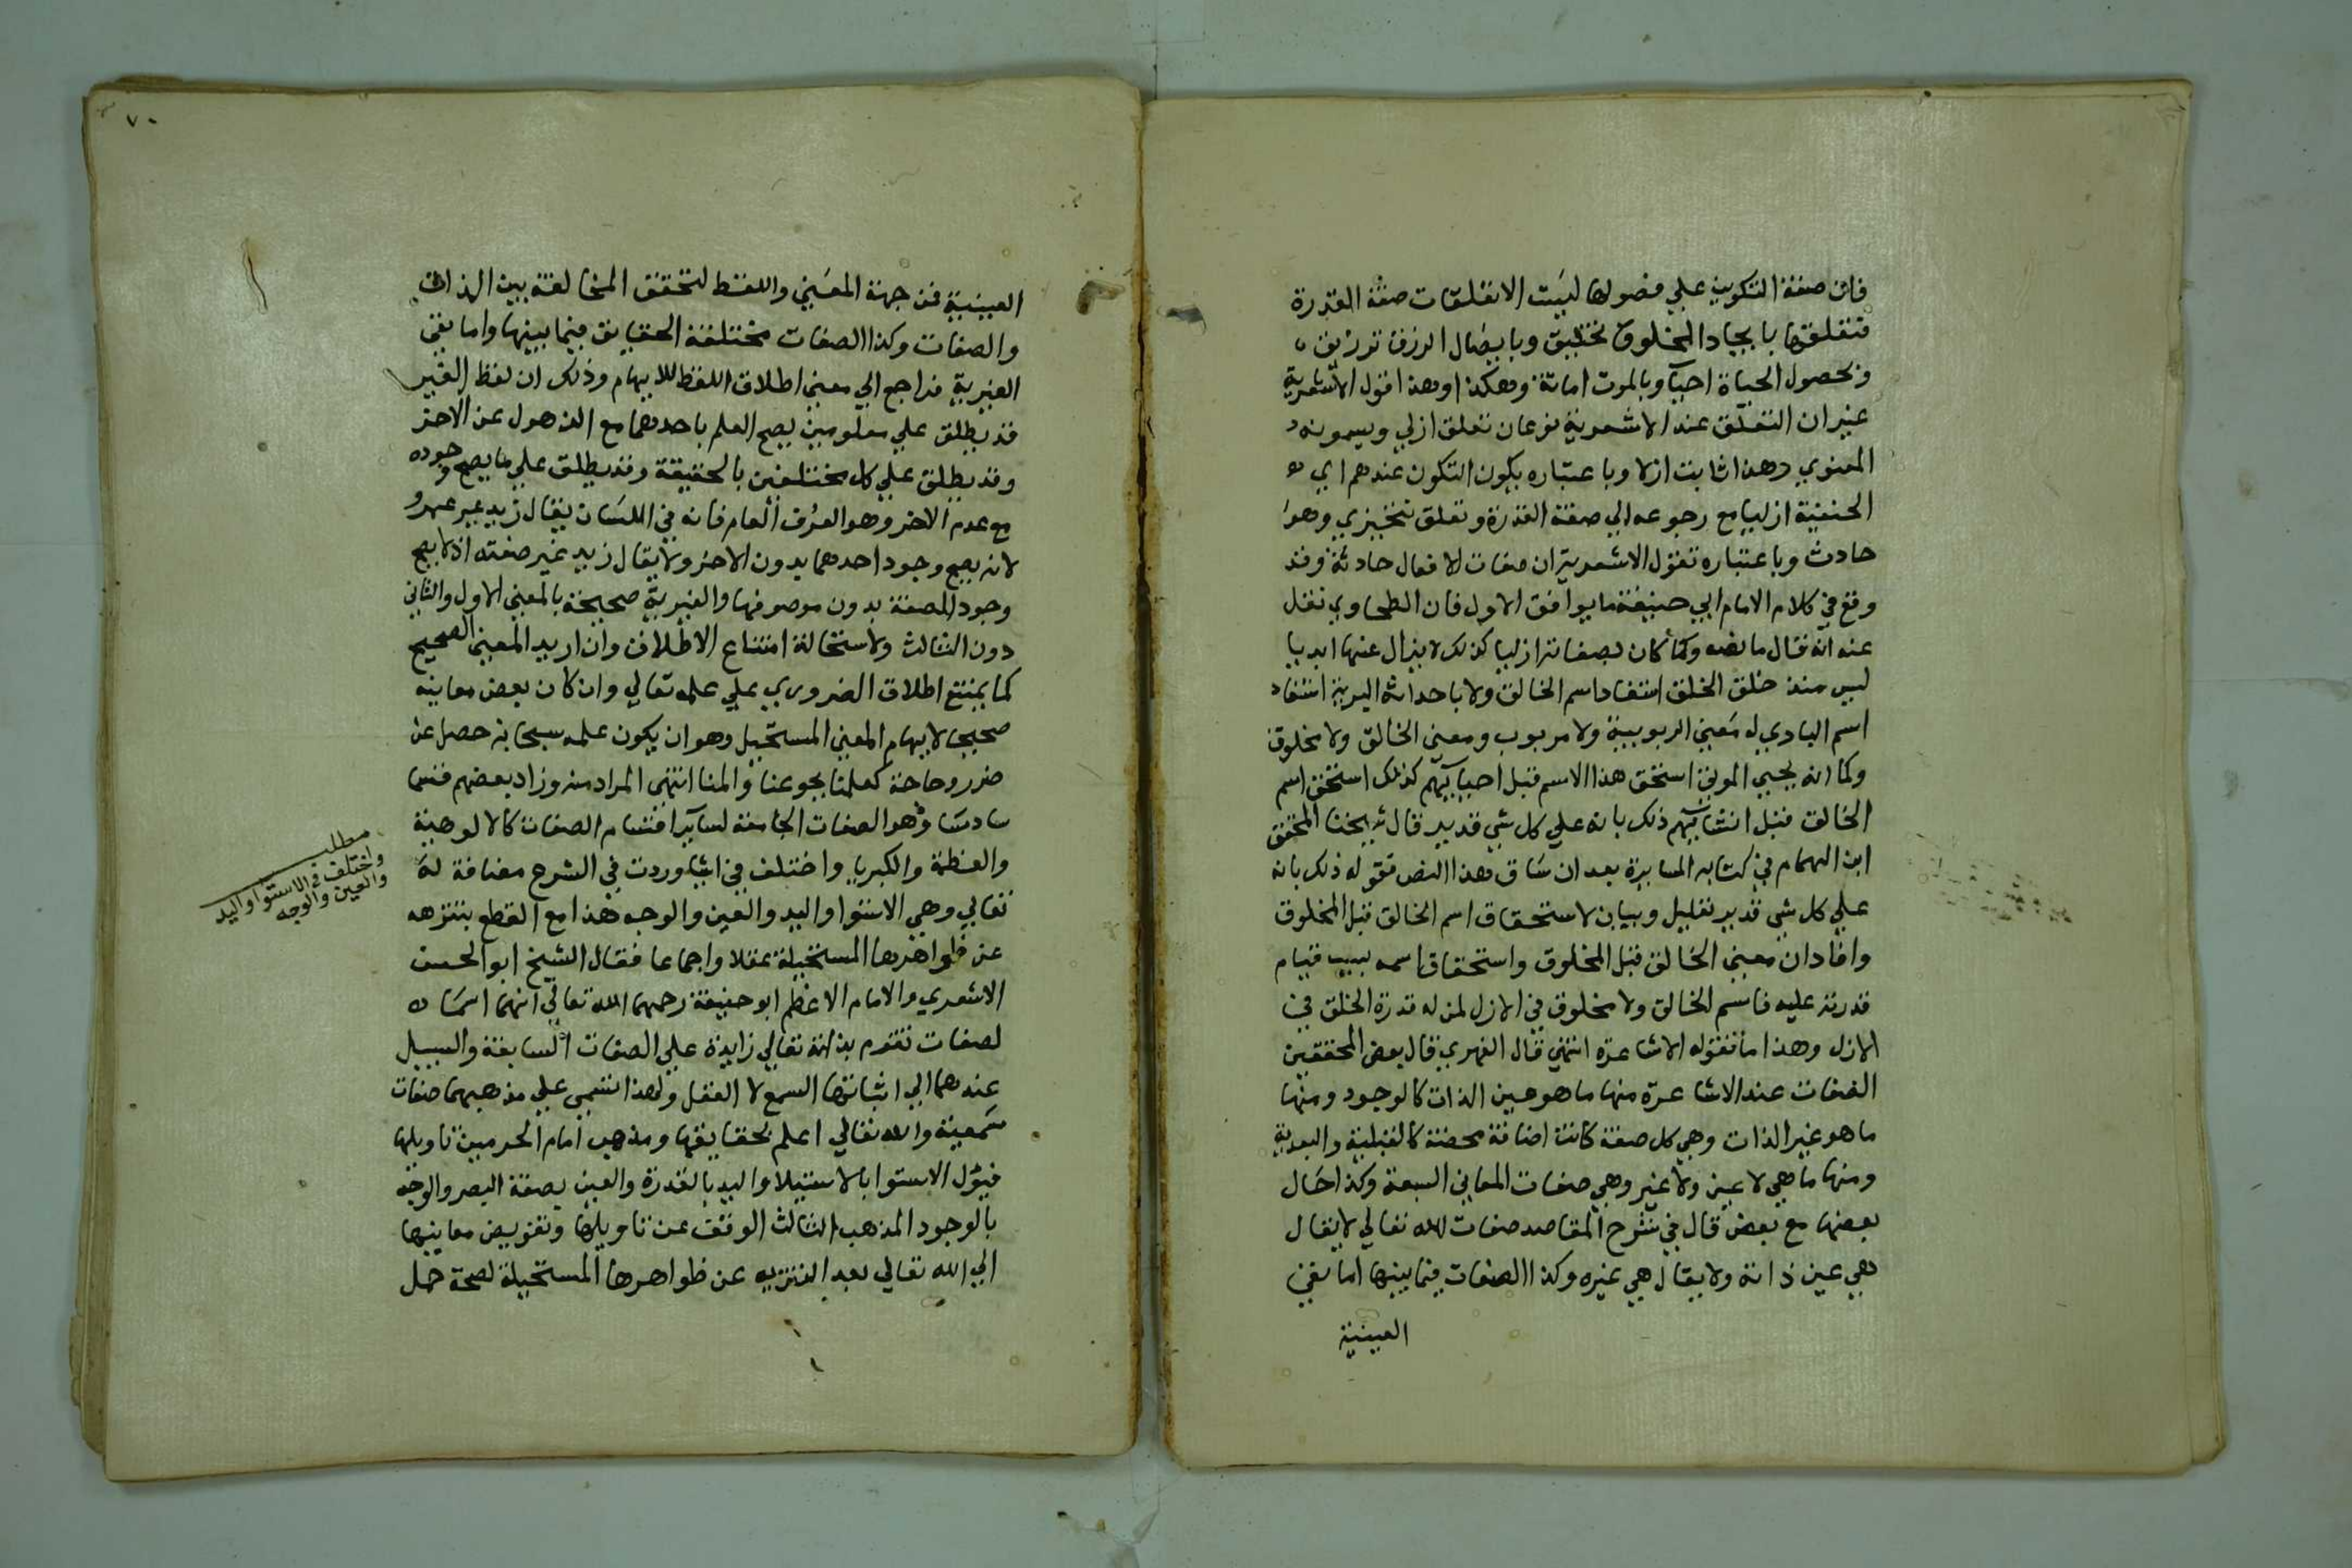 فان صفة التكوين علي فصولها ليست الا تعلقات صفة القدرة
فتعلقها بايجاد المخلوق تخليق وبايصال الرزق ترزيق
وبحصول الحياة احيآ وبالموت اماتة وهكذا وهذا قول الاشعرية
غير ان التعلق عند الاشعرية نوعان تعلق ازلي ويسمونه
المعنوي وهذا ثابت ازلا وباعتباره يكون التكون عندهم اي
الحنفية ازليا مع رجوعه الي صفة القدرة وتعلق تنجيزي وهو
حادث وباعتباره تقول الاشعرية ان صفات الافعال حادثة وقد
وقع في كلام الامام ابي حنيفة ما يوافق الاول فان الطحاوي نقل
عنه انه قال ما نصه وكما كان بصفاته ازليا كذلك لا يزال عنها ابديا
ليس منذ خلق الخلق استفاد اسم الخالق ولا باحداثه البرية استفاد
اسم الباري له معني الربوبية ولا مربوب ومعني الخالق ولا مخلوق
وكما انه يحيي الموتي استحق هذا الاسم قبل احيايهم كذلك استحق اسم
الخالق قبل انشايهم ذلك بانه علي كل شي قدير قال شيخنا المحقق
ابن الهمام في كتابه المسايرة بعد ان ساق هذا النص فقوله ذلك بانه
علي كل شي قدير تعليل وبيان لاستحقاق اسم الخالق قبل المخلوق
وافاد ان معني الخالق قبل المخلوق واستحقاق اسمه بسبب قيام
قدرته عليه فاسم الخالق ولا مخلوق في الازل لمن له قدرة الخلق في
الازل وهذا ما تقوله الاشاعرة انتهي قال الفهري قال بعض المحققين
الصفات عند الاشاعرة منها ما هو عين الذات كالوجود ومنها
ما هو غير الذات وهي كل صفة كانت اضافة محضة كالقبلية والبعدية
ومنها ما هي لا عين ولا غير وهي صفات المعاني السبعة وكذا حال
بعضها مع بعض قال في شرح المقاصد صفات الله تعالي لا يقال
هي عين ذاته ولا يقال هي غيره وكذا الصفات فيما بينها اما نفي
العينية
٧٠
العينية فمن جهة المعني واللفظ لتحقق المخالفة بين الذات
والصفات وكذا الصفات مختلفة الحقايق فيما بينها واما نفي
الغيرية فراجع الي معني اطلاق اللفظ للايهام وذلك ان لفظ الغير
قد يطلق علي معلومين يصح العلم باحدهما مع الذهول عن الاخر
وقد يطلق علي كل مختلفين بالحقيقة وقد يطلق علي ما يصح وجوده
مع عدم الاخر وهو العرف العام فانه في اللسان يقال زيد غير عمرو
لانه يصح وجود احدهما بدون الاخر ولا يقال زيد غير صفته اذ لا يصح
وجود الصفة بدون موصوفها والغيرية صحيحة بالمعني الاول والثاني
دون الثالث ولاستحالة امتناع الاطلاق وان اريد المعني الصحيح
كما يمتنع اطلاق الضروري علي علمه تعالي وان كان بعض معانيه
صحيحا لايهام المعني المستحيل وهو ان يكون علمه سبحانه حصل عن
ضرر وحاجة كعلمنا بجوعنا والمنا انتهي المراد منه وزاد بعضهم قسما
سادسا وهو الصفات الجامعة لساير اقسام الصفات كالالوهية
والعظمة والكبريا واختلف في اشيا وردت في الشرع مضافة له
تعالي وهي الاستوا واليد والعين والوجه هذا مع القطع بتنزهه
عن ظواهرها المستحيلة عقلا واجماعا فقال الشيخ ابو الحسن
الاشعري والامام الاعظم ابو حنيفة رحمهما الله تعالي انهما اسمان
لصفات تقوم بذاته تعالي زايدة علي الصفات السابقة والسبيل
عندهما الي اثباتها السمع لا العقل ولهذا تسمي علي مذهبهما صفات
سمعية والله تعالي اعلم بحقايقها ومذهب امام الحرمين تاويلها
فيؤل الاستوا بالاستيلا واليد بالقدرة والعين بصفة البصر والوجه
بالوجود المذهب الثالث الوقف عن تاويلها وتفويض معانيها
الي الله تعالي بعد التنزيه عن ظواهرها المستحيلة لصحة حمل
مطلب
واختلف في الاستوا واليد
والعين والوجه